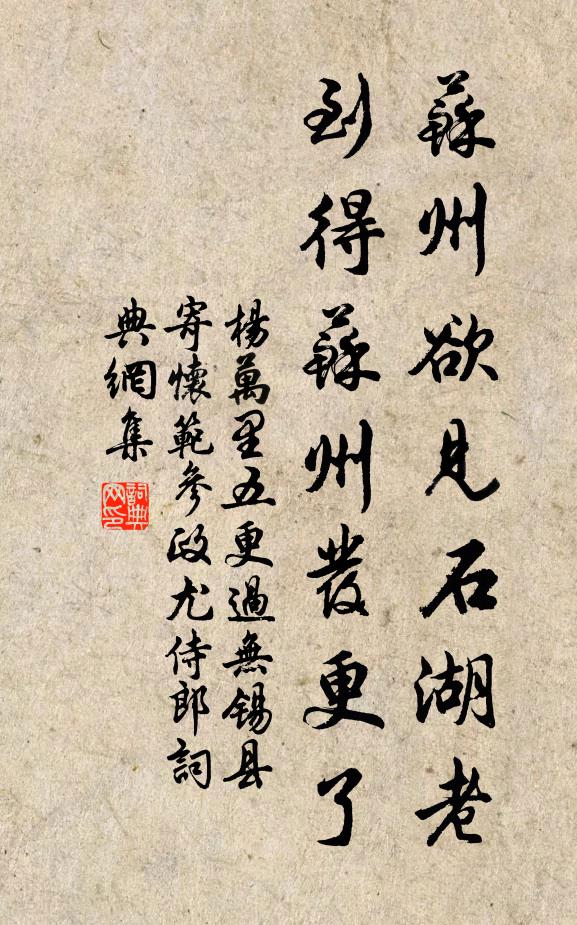 蘇州欲見石湖老
到得蘇州發更了
楊萬里五更過無錫县
寄懷範參政尤侍郎詞
典網集
詞典
网印